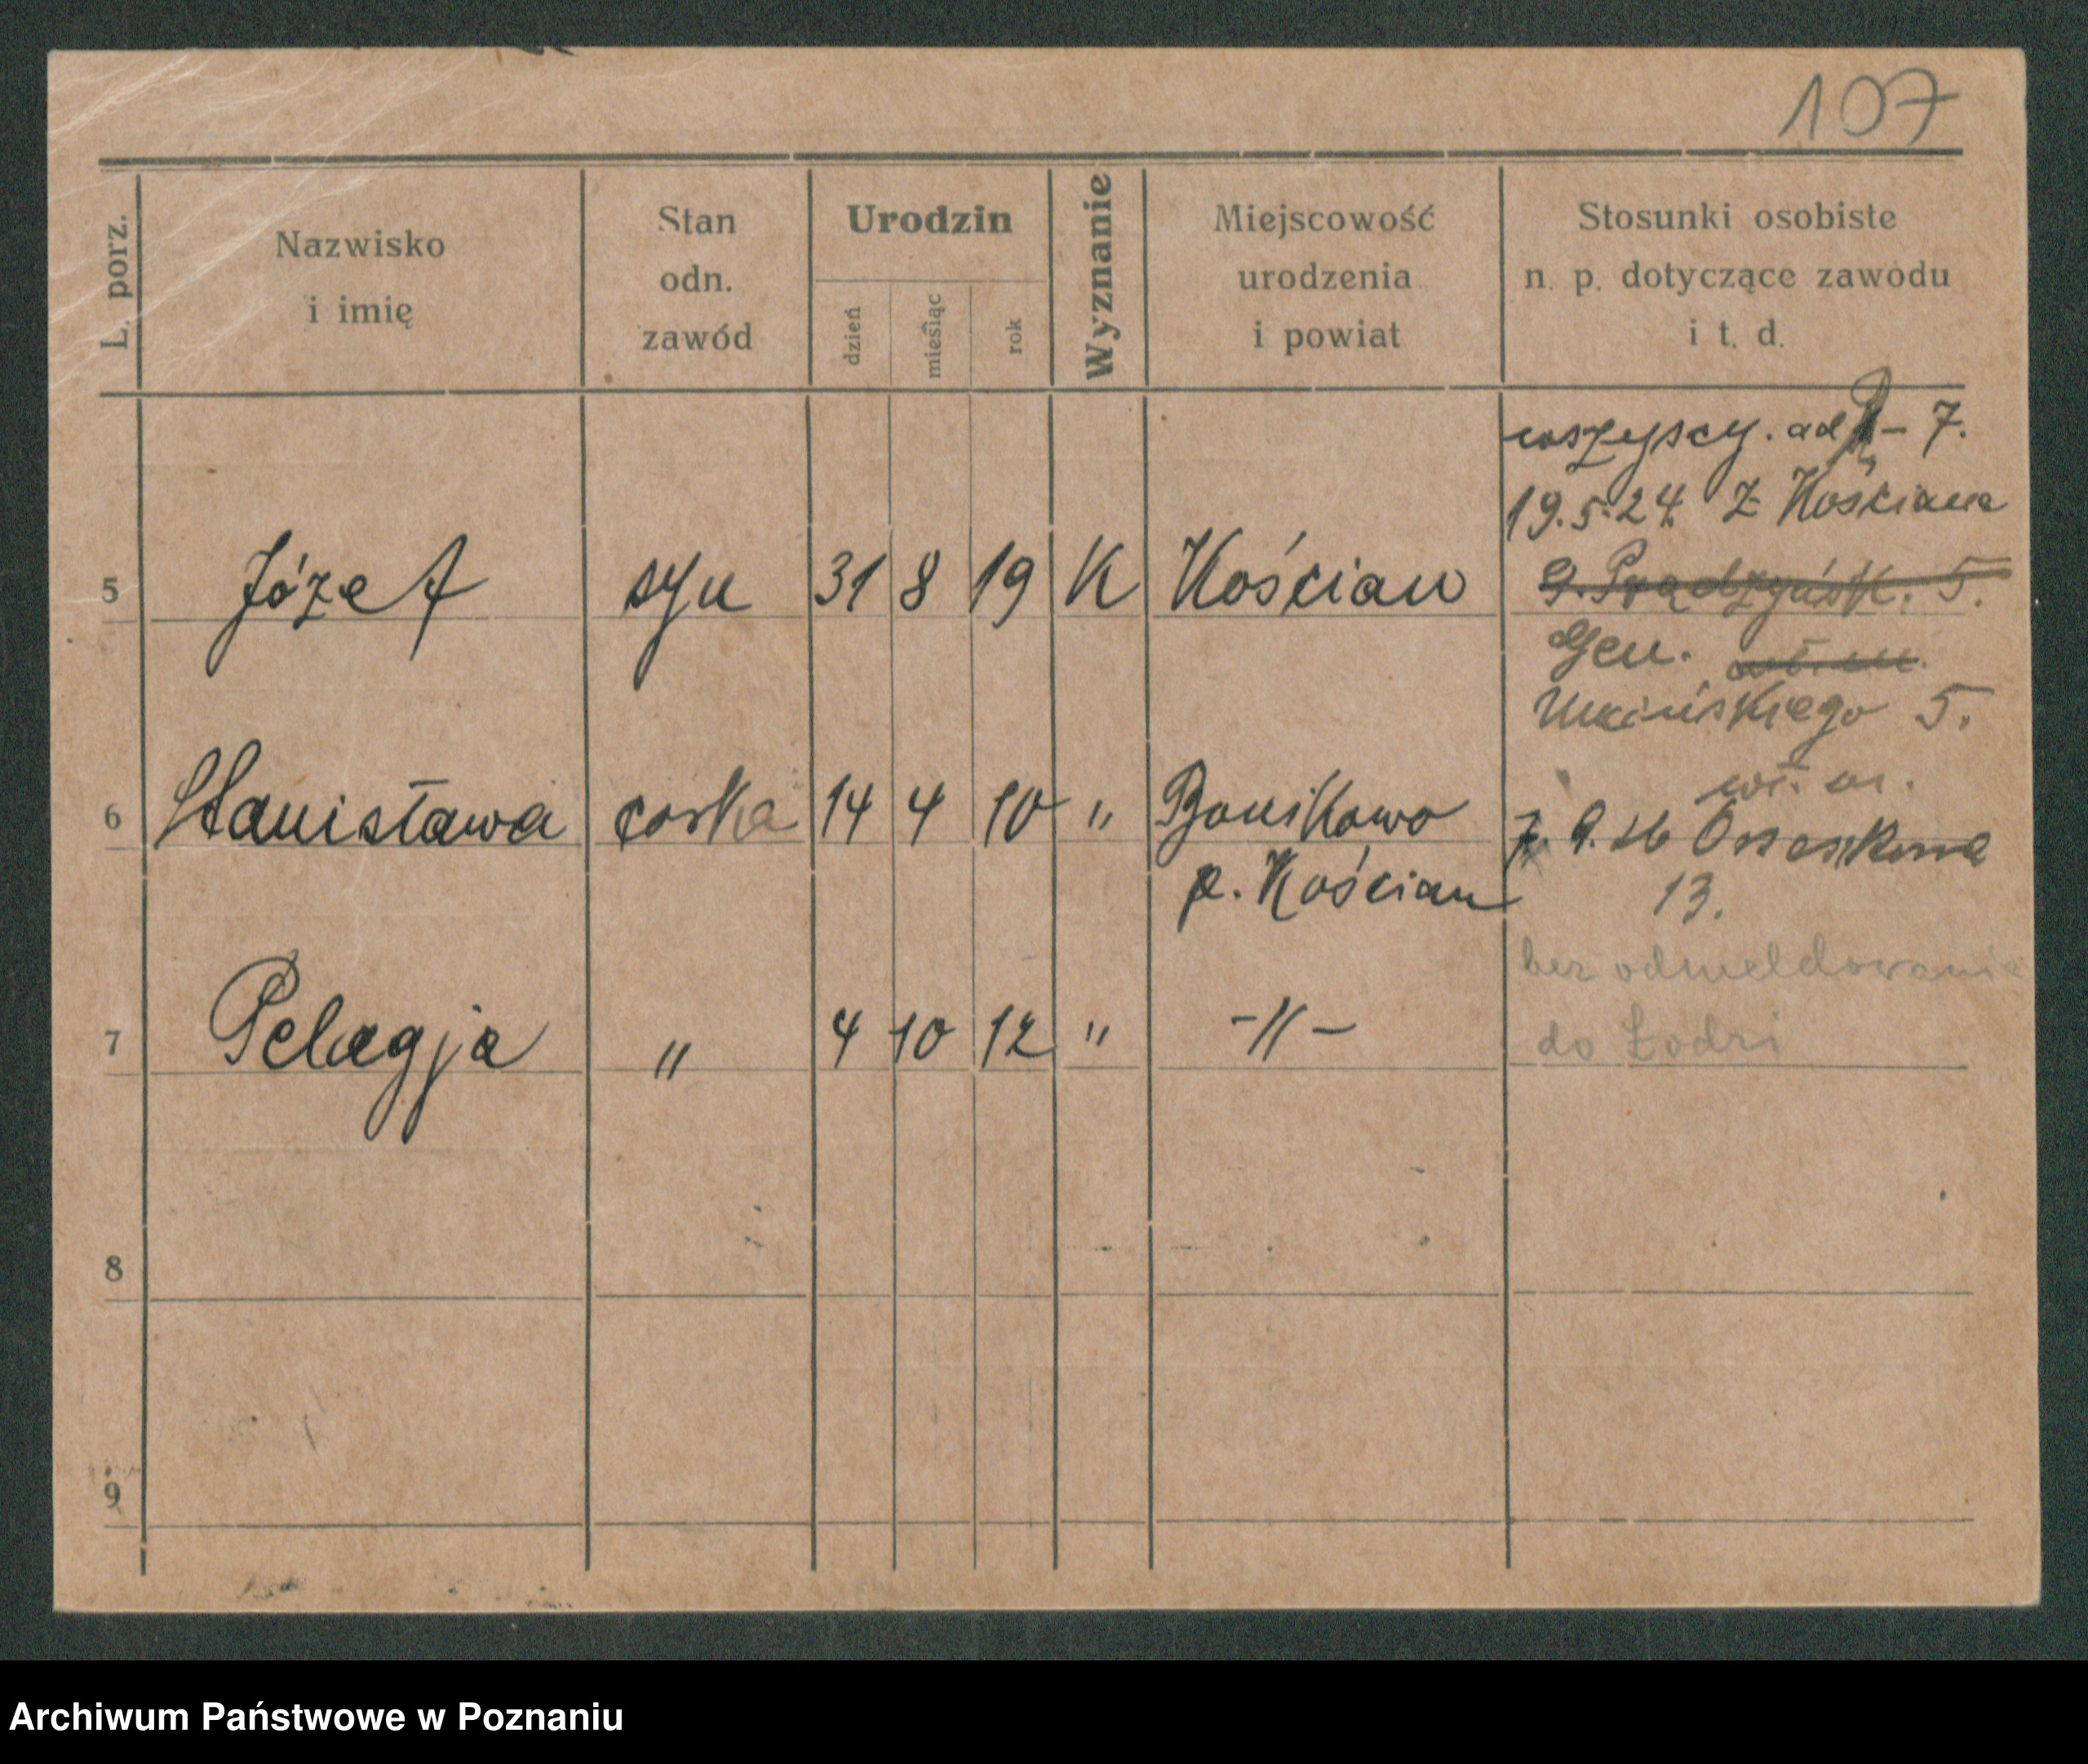 107
L. porz.
Nazwisko
i imię
Stan
odn.
zawód
Urodzin
dzień
miesiąc
rok
Wyznanie
Miejscowość
urodzenia
i powiat
Stosunki osobiste
n. p. dotyczące zawodu
i t. d.
5 Józef syn 31 8 19 K Kościan
6 Stanisława corka 14 4 10 " Bonikowo
p. Kościan
7 Pelagja " 4 10 12 " -"-
8
9
wszyscy. od - 7.
19.5.24. Z Kościana
G. Prądzyńsk. 5.
Gen.
Umińskiego 5.
wł. m.
7. 9. 26 13.
bez odmeldowania
do Łodzi
Archiwum Państwowe w Poznaniu